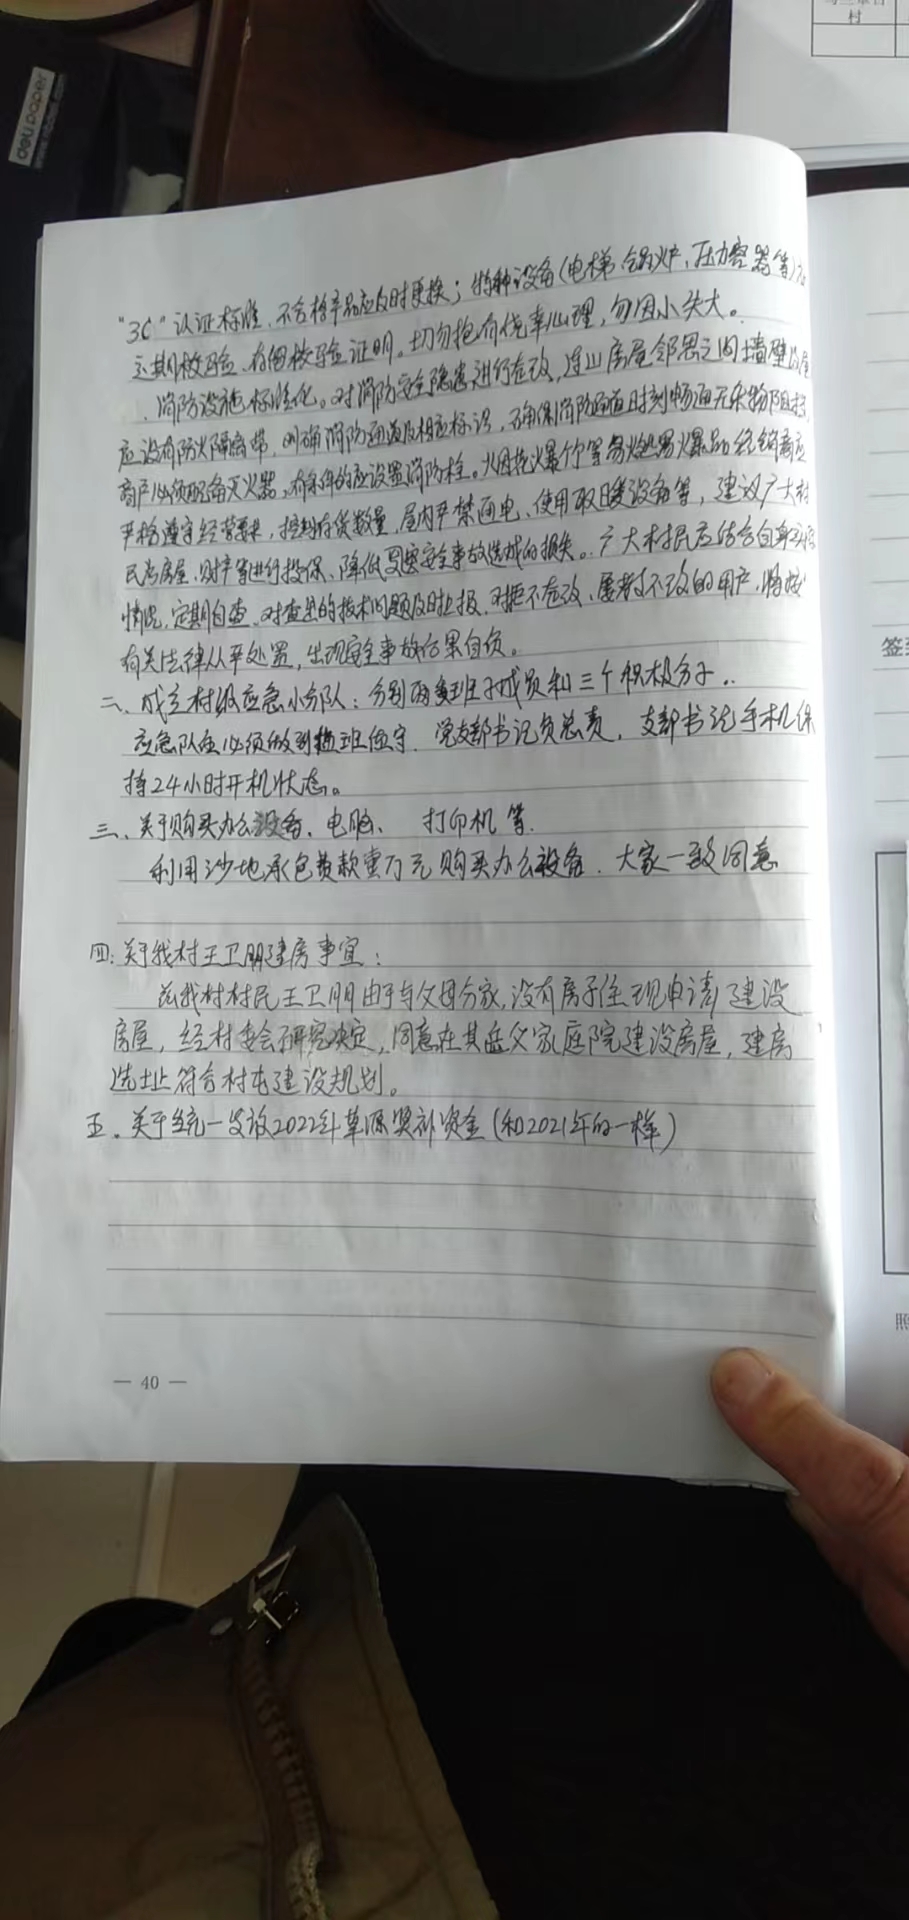 deli paper
村
"3C"认证标准,不合格产品应及时更换;特种设备(电梯、锅炉、压力容器等)应
定期校验、存留校验证明。切勿抱有侥幸心理,勿因小失大。
、消防设施标准化。对消防安全隐患进行查改,连山房屋邻居之间墙壁
应设有防火隔离带,明确消防通道及相应标识,确保消防通道时刻畅通无杂物阻挡
商户必须配备灭火器,有条件的应设置消防栓。火因花火爆竹等易燃易爆品经销商应
严格遵守经营要求,控制存货数量,屋内严禁通电、使用取暖设备等,建议广大村
民为房屋、财产等进行投保、降低因安全事故造成的损失。广大村民应结合自身实际
情况,定期自查、对查出的技术问题及时上报,对拒不查改、屡教不改的用户,将按
有关法律从严处置,出现安全事故后果自负。
二、成立村级应急小分队:分别两委班子成员和三个积极分子..
应急队伍必须做到值班值守、党支部书记负总责,支部书记手机保
持24小时开机状态。
三、关于购买办公设备、电脑、打印机等.
利用沙地承包费款壹万元购买办公设备、大家一致同意
四:关于我村王卫朋建房事宜:
兹我村村民王卫朋由于与父母分家,没有房子住现申请建设
房屋,经村委会研究决定,同意在其岳父家庭院建设房屋,建房
选址符合村屯建设规划。
五、关于统一发放2022年草原奖补资金(和2021年的一样)
— 40 —
签到
照